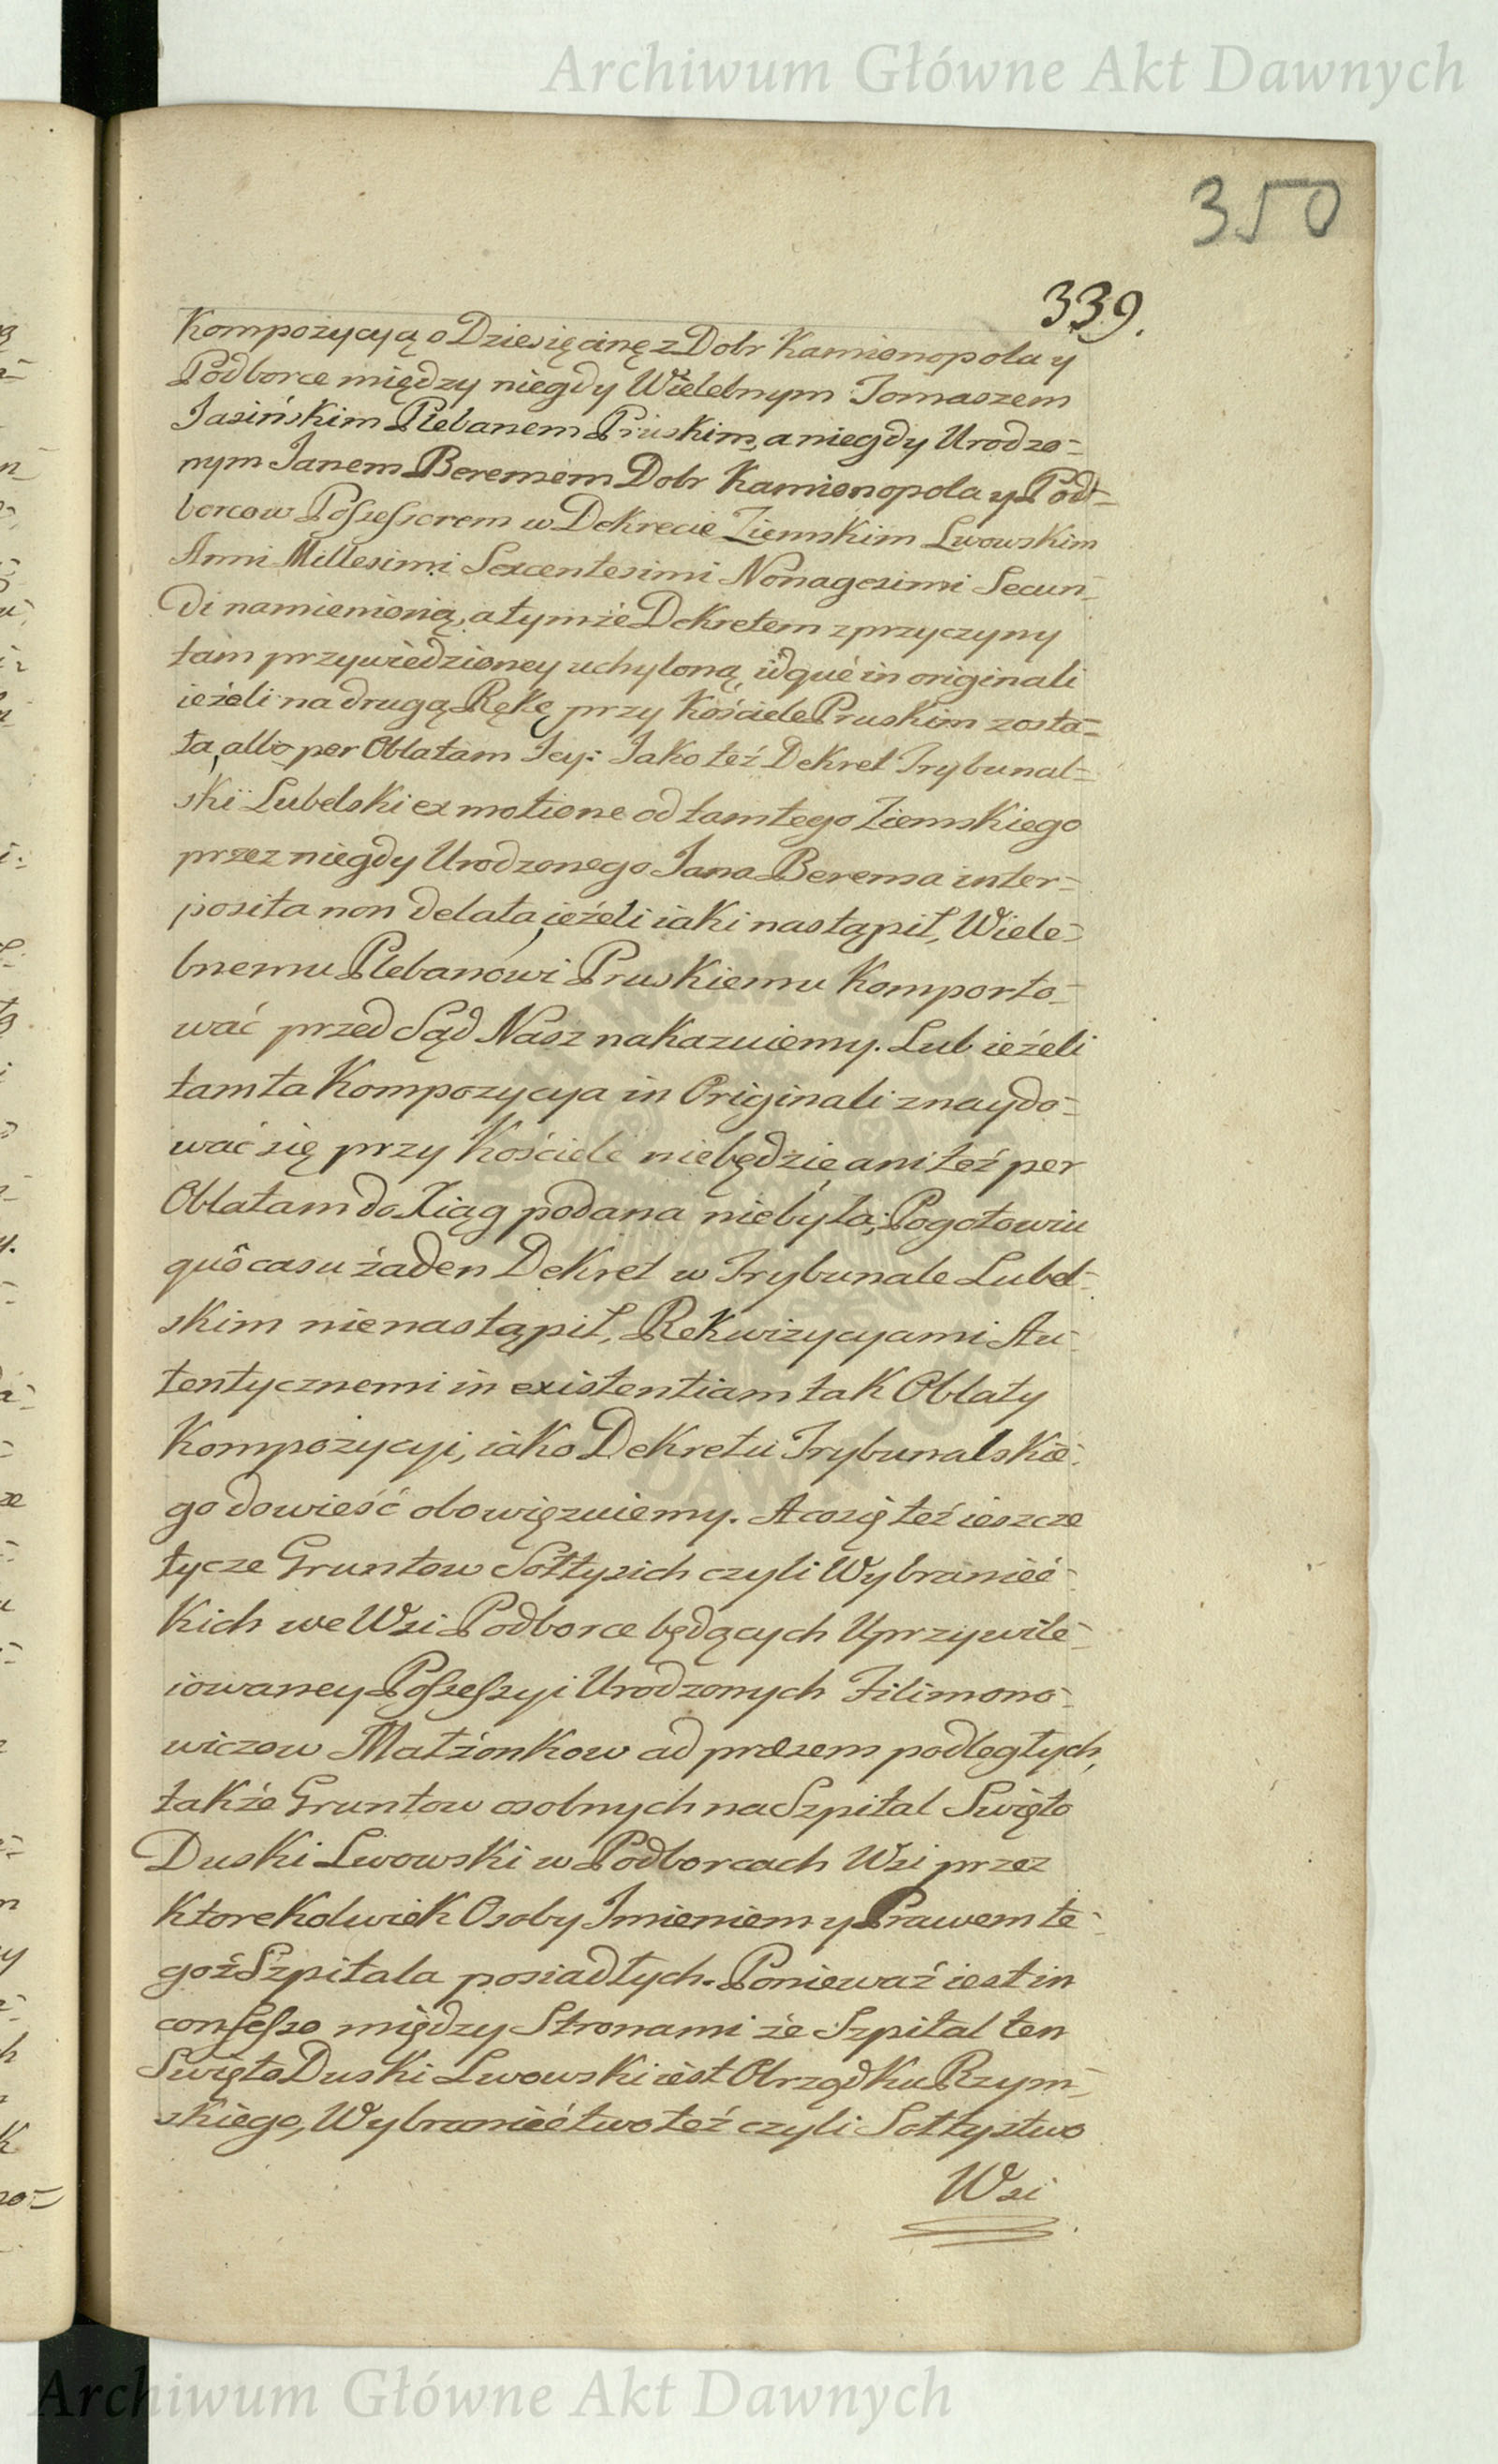 Archiwum Główne Akt Dawnych
350
339.
Kompozycyą o Dziesięcinę z Dobr Kamionopola y
Podborce między niegdy Wielebnym Tomaszem
Jasińskim Plebanem Pruskim, a niegdy Urodzo=
nym Janem Beremem Dobr Kamionopola y Pod=
borcow Possessorem w Dekrecie Ziemskim Lwowskim
Anni Millesimi Sexcentesimi Nonagesimi Secun=
di namienioną, a tymże Dekretem z przyczyny
tam przywiedzioney uchyloną, idquè in originali
ieżeli na drugą Rękę przy Kościele Pruskim zosta=
ła, albo per Oblatam Jey: Jako też Dekret Trybunal=
ski Lubelski ex motione od tamtego Ziemskiego
przez niegdy Urodzonego Jana Berema inter=
posita non delata, ieżeli iaki nastąpił, Wiele=
bnemu Plebanowi Pruskiemu Komporto=
wać przed Sąd Nasz nakazuiemy. Lub ieżeli
tamta Kompozycya in Originali znaydo=
wać się przy Kościele niebędzie, ani też per
Oblatam do Xiąg podana niebyła; Pogotowiu
quô casu żaden Dekret w Trybunale Lubel=
skim nienastąpił, Rekwizycyami Au=
tentycznemi in existentiam tak Oblaty
Kompozycyi, iako Dekretu Trybunalskie=
go dowieść obowięzuiemy. A co się też ieszcze
tycze Gruntow Sołtysich czyli Wybranieć=
kich we Wsi Podborce będących Uprzywile=
iowaney Possessyi Urodzonych Filimono=
wiczow Małżonkow ad præsens podległych,
także Gruntow osobnych na Szpital Swięto
Duski Lwowski w Podborcach Wsi przez
Ktorekolwiek Osoby Imieniem y Prawem te=
goż Szpitala posiadłych. Ponieważ iest in
confesso między Stronami że Szpital ten
Swięto Duski Lwowski iest Obrządku Rzym=
skiego, Wybraniećtwo też czyli Sołtystwo
Wsi
Archiwum Główne Akt Dawnych